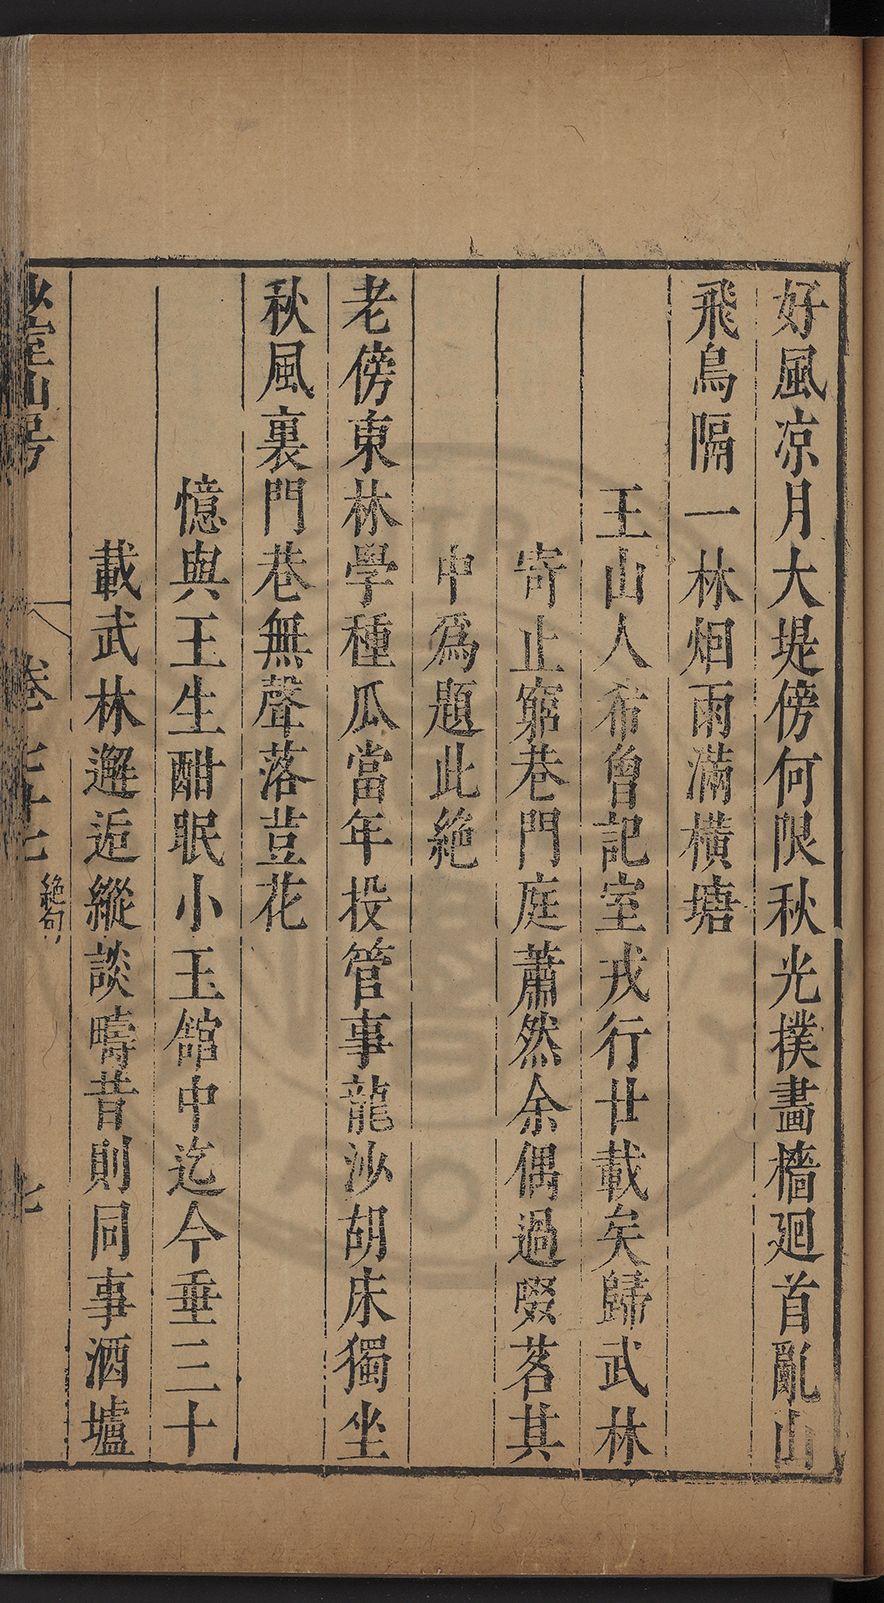 好風凉月大堤傍何限秋光撲畵檣廻首亂山
飛鳥隔一林烟雨滿橫塘
王山人希曾記室戎行廿載矣歸武林
寄止窮巷門庭蕭然余偶過啜茗其
中爲題此絶
老傍東林學種瓜當年投管事龍沙胡床獨坐
秋風裏門巷無聲落荳花
憶與王生酣眠小玉舘中迄今垂三十
載武林邂逅縱談疇昔則同事酒壚
少室山房
卷七十七
絶句
七